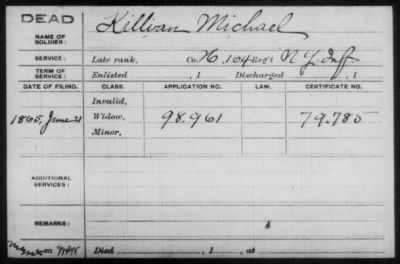 DEAD
NAME OF SOLDIER: Killivan Michael
SERVICE: Late rank, Co. H, 104 Reg't N.Y. Inf.
TERM OF SERVICE: Enlisted , 1 Discharged , 1
DATE OF FILING. CLASS. APPLICATION NO. LAW. CERTIFICATE NO.
Invalid,
1865, June 21 Widow, 98.961 79.785
Minor,
ADDITIONAL SERVICES:
REMARKS:
Died , 1 , at